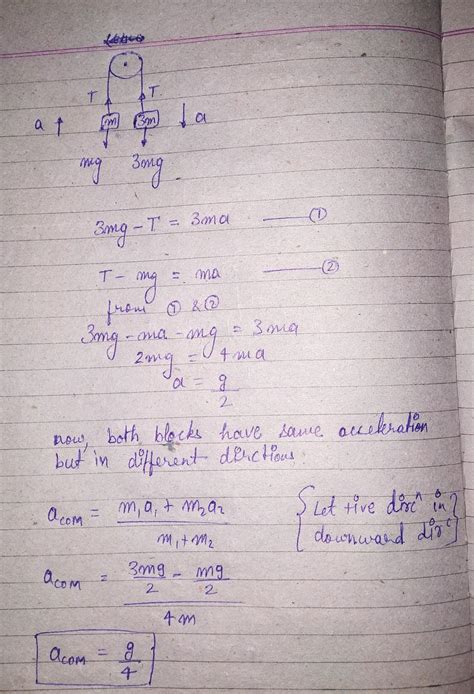 T T
a m 3m a
mg 3mg
3mg - T = 3ma ①
T - mg = ma ②
from ① & ②
3mg - ma - mg = 3ma
2mg = 4ma
a = g/2
now, both blocks have same acceleration
but in different dirctions.
a_com = (m₁a₁ + m₂a₂)/(m₁ + m₂)
{Let +ive dirⁿ in
downward dirⁿ}
a_com = (3mg/2 - mg/2)/4m
a_com = g/4